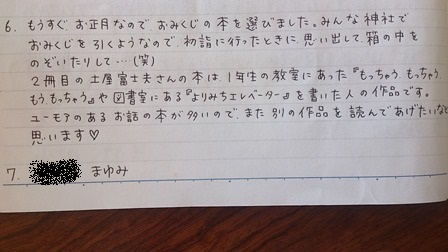 6. もうすぐ お正月なので、おみくじの本を選びました。みんな神社で
おみくじを引くようなので、初詣に行ったときに 思い出して、箱の中を
のぞいたりして‥‥(笑)
2冊目の土屋富士夫さんの本は、1年生の教室にあった『もっちゃう もっちゃう
もうもっちゃう』や 図書室にある『よりみちエレベーター』を書いた人の作品です。
ユーモアのある お話の本が多いので、また 別の作品を 読んであげたいなと
思います♡
7. まゆみ